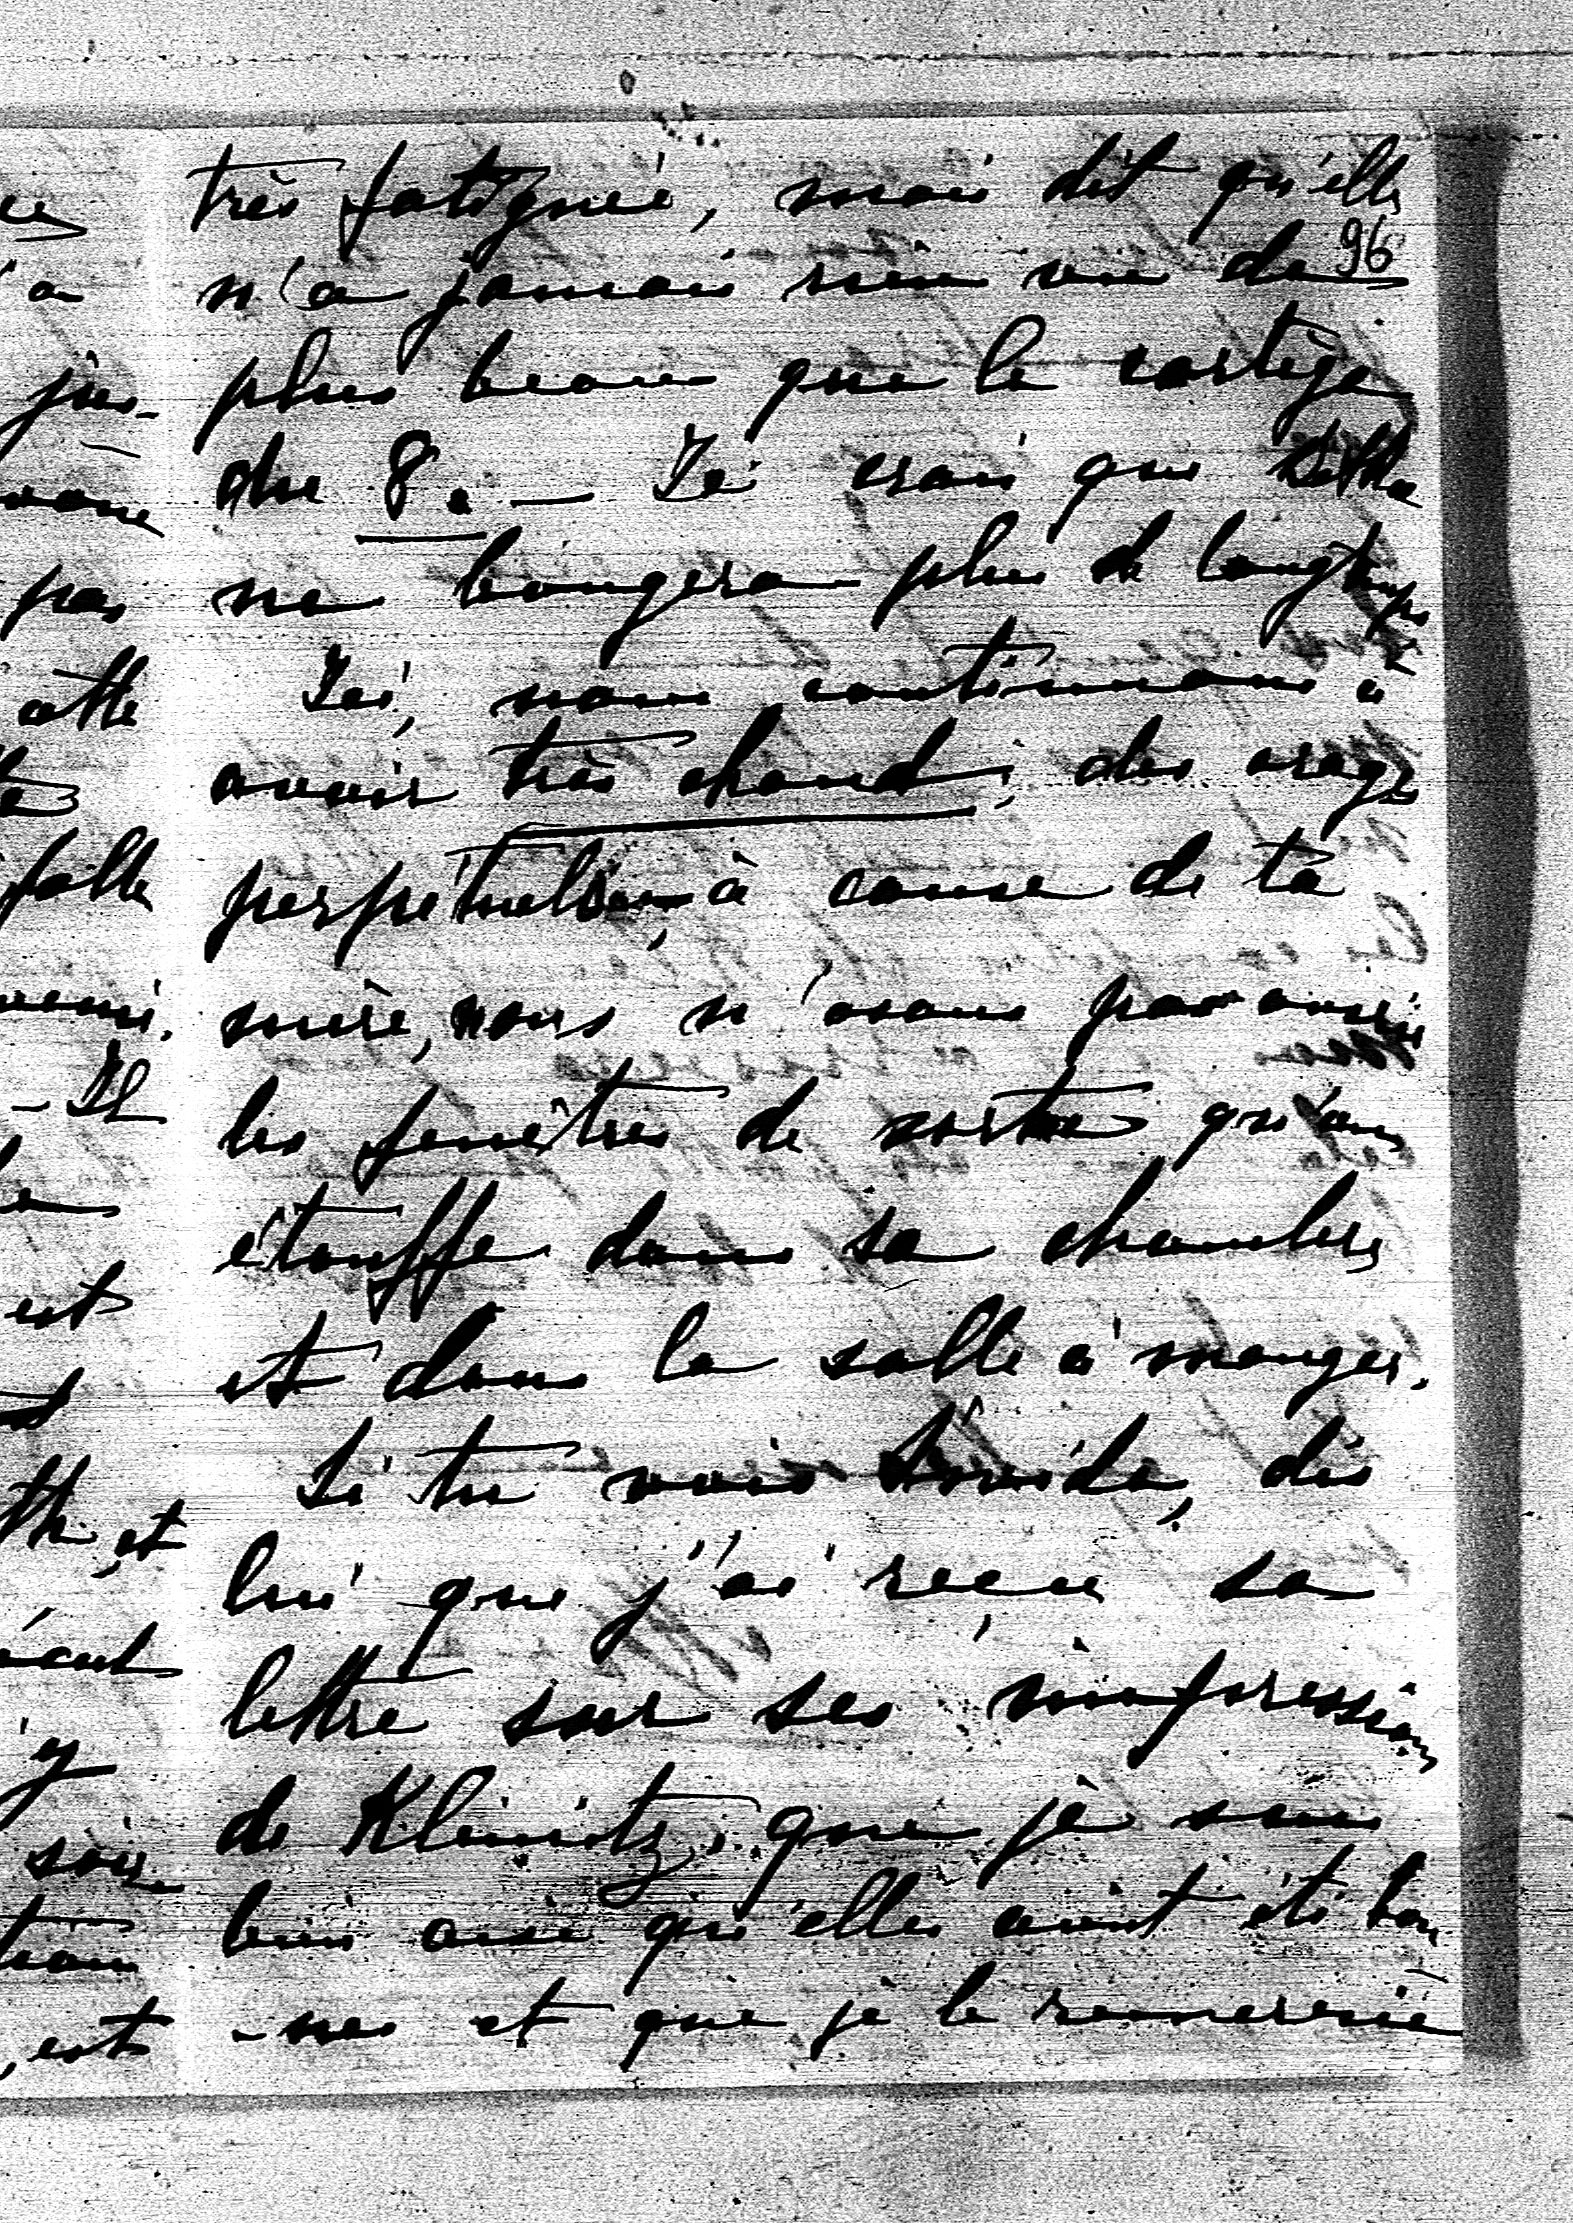 très fatiguée, mais dit qu'elle
96
n'a jamais rien vu de
plus beau que le cortège
du 8. — Je crois que
ne bougera plus de longtemps
Ici, nous continuons à
avoir très chaud, des orages
perpétuels, à cause de ta
mère, nous n'osons pas ouvrir
les fenêtres de sorte qu'on
étouffe dans sa chambre
et dans la salle à manger.
Si tu vois dis
lui que j'ai reçu sa
lettre sur ses impressions
de Kleinitz, que je suis
bien aise qu'elles aient été bon
-nes et que je le remercie
ce
'a
jus-
pas
cette
folle
- Il
est
et
y
soir
, est